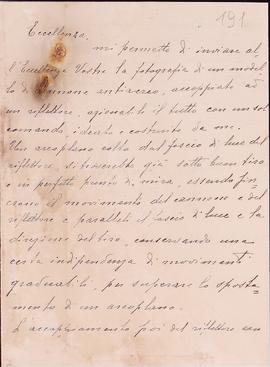 191
Eccellenza,
mi permetto di inviare al
l'Eccellenza Vostra la fotografia di un model
lo di cannone antiaereo, accoppiato ad
un riflettore, azionabile il tutto con un sol
comando, ideato e costruito da me.
Un areoplano colto dal fascio di luce del
riflettore, si troverebbe già sotto buon tiro
e in perfetto punto di mira, essendo sin
crono il movimento del cannone e del
riflettore e paralleli il fascio di luce e la
direzione del tiro, conservando una
certa indipendenza di movimenti
graduabili, per superare lo sposta
mento di un areoplano.
L'accoppiamento poi del riflettore con